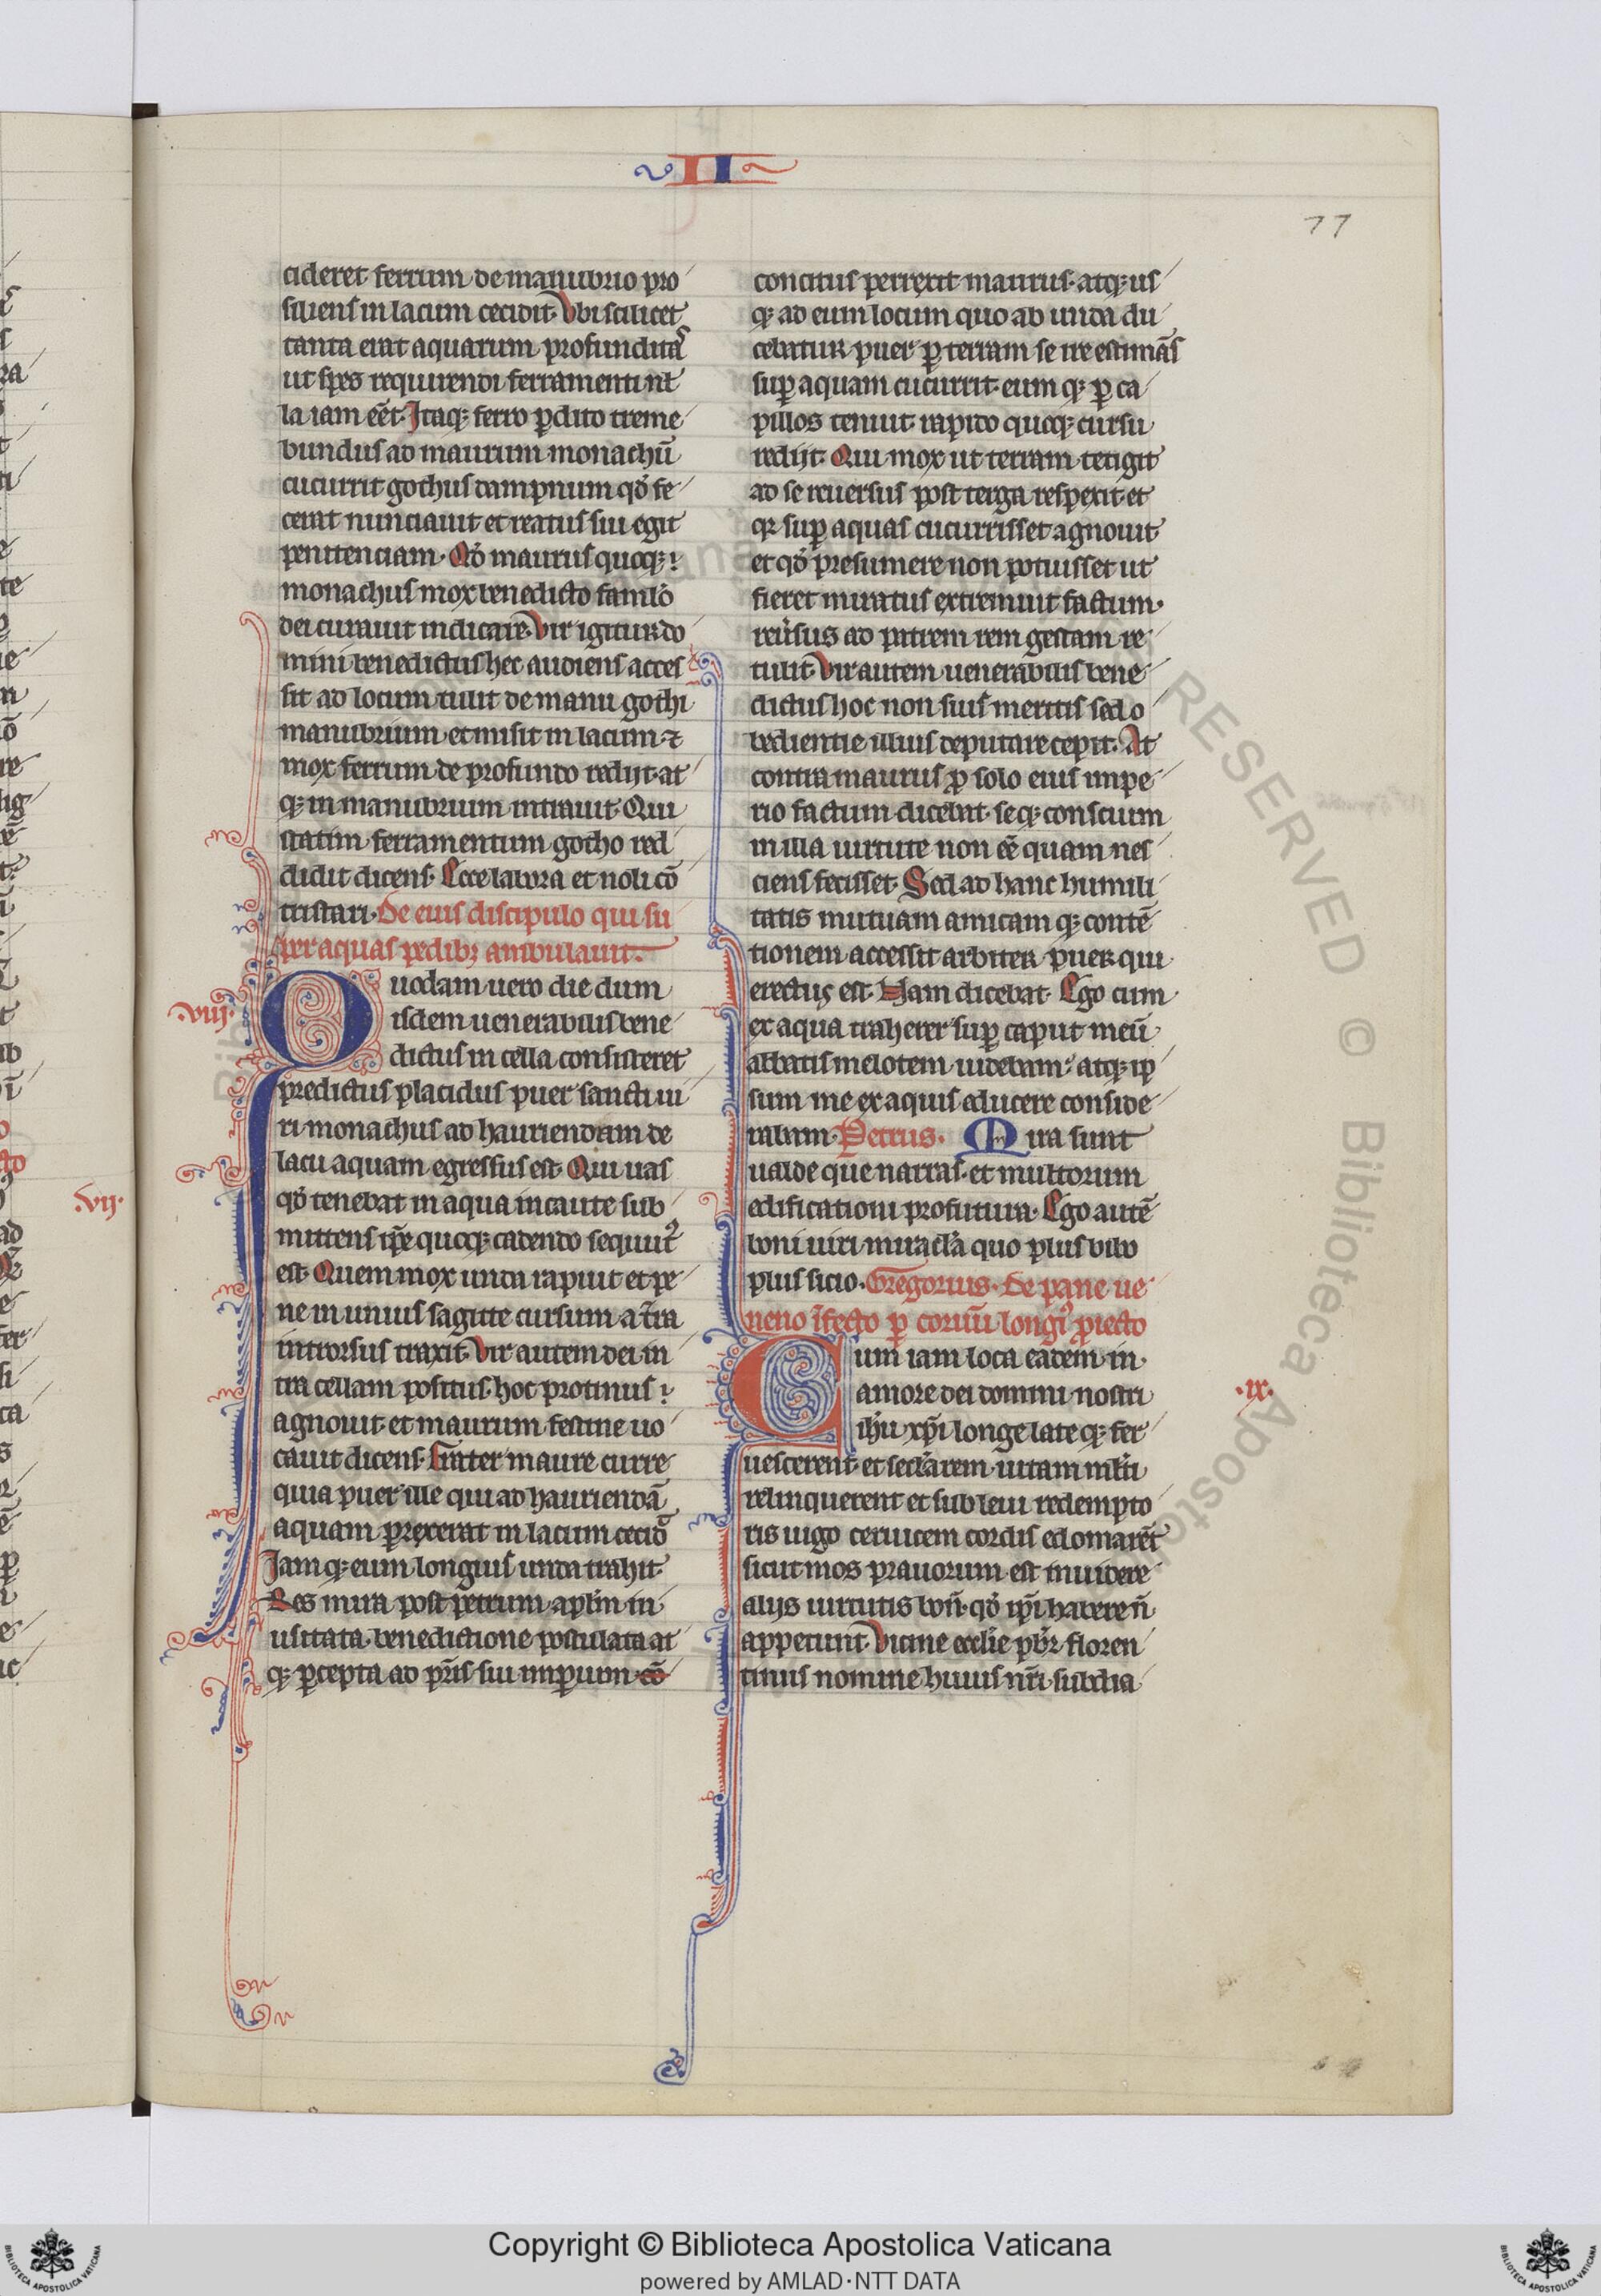 II
77
cideret ferrum de manubrio pro
siliens in lacum cecidit. Vbi scilicet
tanta erat aquarum profunditas
ut spes requirendi ferramenti nł
la iam eēt. Itaq; ferro ꝑdito treme
bundus ad maurum monachū
cucurrit gothus dampnum qď fe
cerat nunciauit et reatus sui egit
penitenciam. Qď maurus quoq;
monachus mox benedicto famlō
dei curauit indicare. Vir igitur do
mini benedictus hec audiens acces
sit ad locum tulit de manu gothi
manubrium et misit in lacum ⁊
mox ferrum de profundo redijt at
q; in manubrium intrauit. Qui
statim ferramentum gotho red
didit dicens. Ecce labora et noli cō
tristari. De eius discipulo qui su
per aquas pedib; ambulauit.
.viij.
Quodam uero die dum
isdem uenerabilis bene
dictus in cella consisteret
predictus placidus puer sancti ui
ri monachus ad hauriendam de
lacu aquam egressus est. Qui uas
qď tenebat in aqua incaute sub
mittens ip̄e quoq; cadendo sequut᷒
est. Quem mox unda rapuit et pe
ne in unius sagitte cursum a t̄ra
introrsus traxit. Vir autem dei in
tra cellam positus hoc protinus
agnouit et maurum festine uo
cauit dicens. Frater maure curre
quia puer ille qui ad hauriendā
aquam ꝑrexerat in lacum cecid
Iam q; eum longius unda trahit
Res mira post petrum apl̄m in
usitata. benedictione postulata at
q; ꝑcepta ad pr̄is sui imꝑium cō
concitus perrexit maurus. atq; us
q; ad eum locum quo ab unda du
cebatur puer ꝑ terram se ire estimās
suꝑ aquam cucurrit. eum q; ꝑ ca
pillos tenuit rapido quoq; cursu
redijt. Qui mox ut terram tetigit
ad se reuersus post terga respexit et
qꝛ suꝑ aquas cucurrisset agnouit
et qď presumere non potuisset ut
fieret miratus extremuit factum.
reūsus ad patrem rem gestam re
tulit. Vir autem uenerabilis bene
dictus hoc non suis meritis sed o
bedientie illius deputare cepit. At
contra maurus ꝓ solo eius impe
rio factum dicebat. se q; conscium
in illa uirtute non eē quam nes
ciens fecisset. Sed ad hanc humili
tatis mutuam amicam q; contē
tionem accessit arbiter puer qui
erectus est. Nam dicebat. Ego cum
ex aqua traherer suꝑ caput meū
abbatis melotem uidebam. atq; ip
sum me ex aquis educere conside
rabam. Petrus. Mira sunt
ualde que narras. et multorum
edificationi profutura. Ego autē
boni uiri miracl̄a quo plus bibo
plus sicio. Gregorius. De pane ue
neno īfecto ꝑ coruū longi᷒ ꝓiecto
.ix.
Cum iam loca eadem in
amore dei domini nostri
ihū xp̄i longe late q; fer
uescerent. et secl̄arem uitam ml̄ti
relinquerent et sub leui redempto
ris iugo ceruicem cordis edomarēt
sicut mos prauorum est inuidere
alijs uirtutis bon̄. qď ip̄i habere n̄
appetunt. Vicine eccl̄ie pbr̄ floren
tinus nomine huius nr̄i subdia
.vij.
Copyright © Biblioteca Apostolica Vaticana
powered by AMLAD·NTT DATA